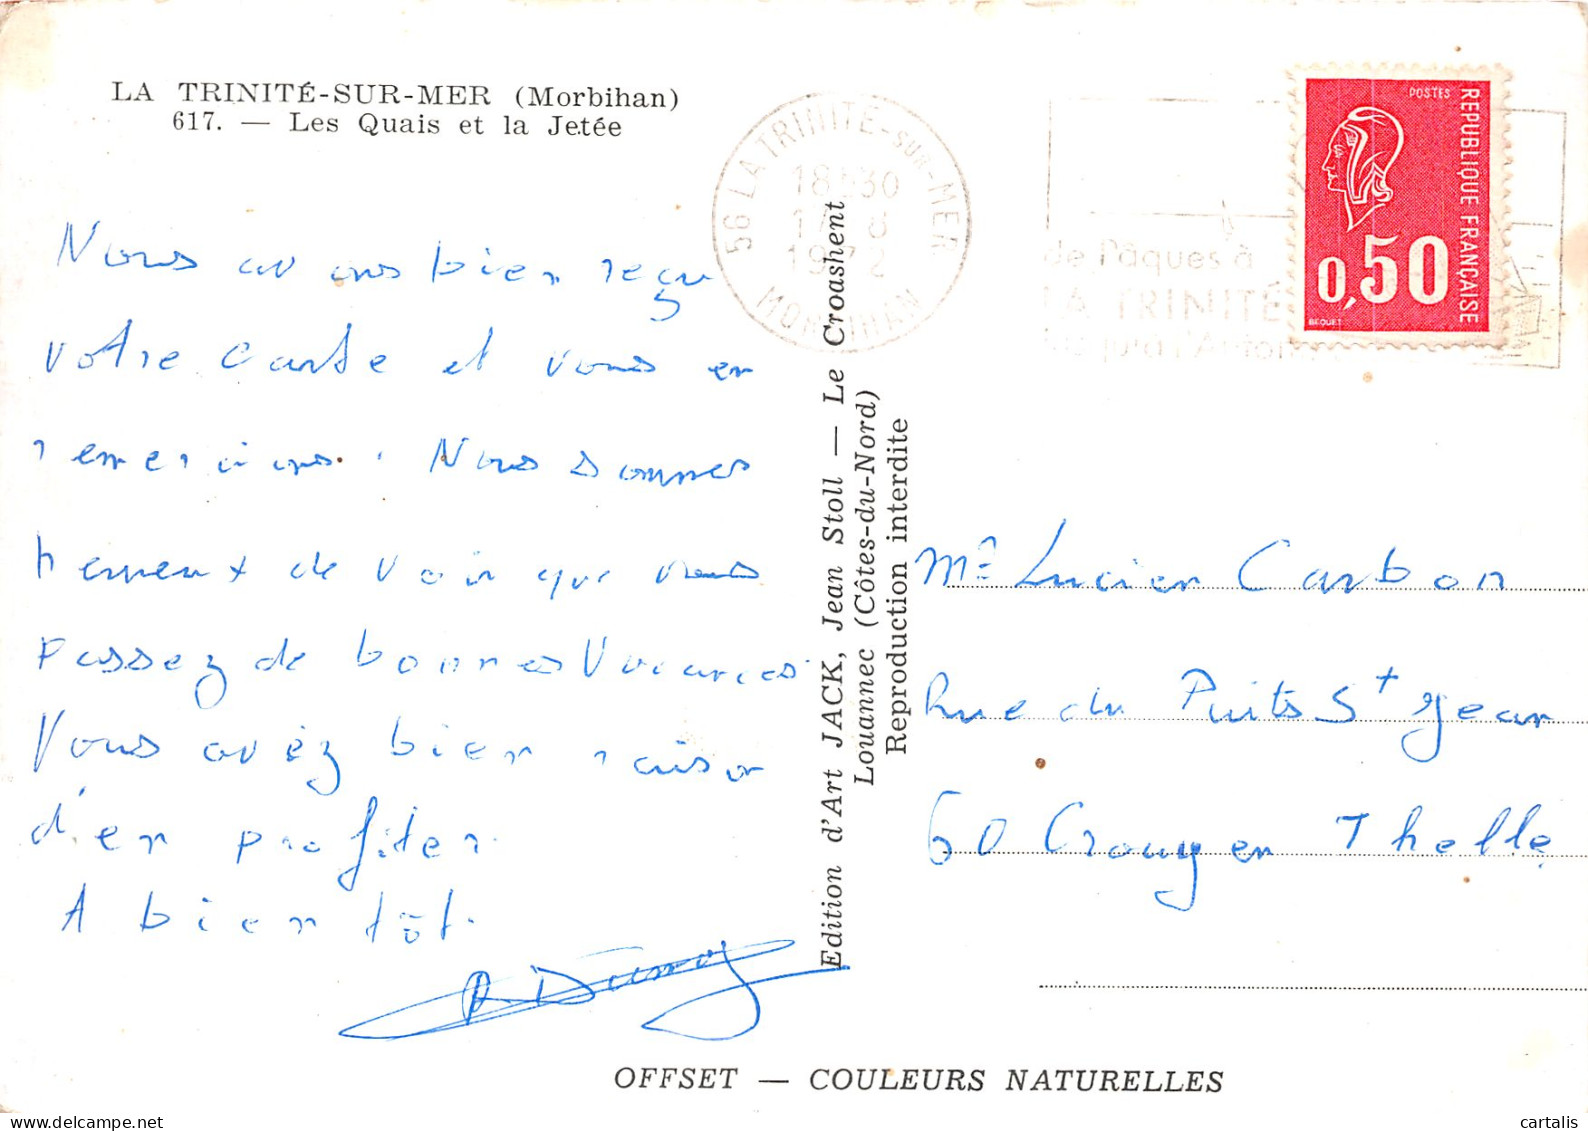 LA TRINITÉ-SUR-MER (Morbihan)
617. — Les Quais et la Jetée
Nous avons bien reçu
votre carte et vous en
remercions. Nous sommes
heureux de voir que vous
passez de bonnes vacances
Vous avez bien raison
d'en profiter.
A bientôt.
56 LA TRINITÉ-SUR-MER
18H30
17 8
1972
MORBIHAN
de Pâques à
LA TRINITÉ
POSTES
REPUBLIQUE FRANÇAISE
0,50
BEQUET
Edition d'Art JACK, Jean Stoll — Le Croashent
Louannec (Côtes-du-Nord)
Reproduction interdite
Mr Lucien Carbon
Rue du Puits St Jean
60 Crouy en Thelle
OFFSET — COULEURS NATURELLES
delcampe.net
cartalis